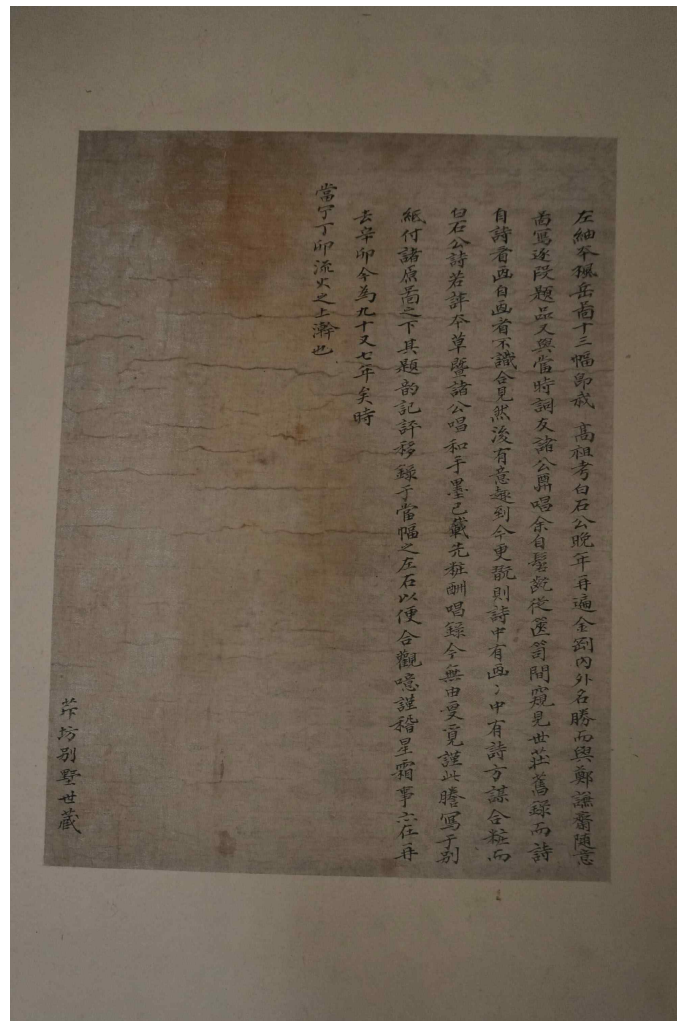 左紬本楓岳啚十三幅卽我 高祖考白石公晩年再遍金剛內外名勝而與鄭謙齋隨意
啚寫逐段題品又與當時詞友諸公賡唱余自髫齔從篋笥間窺見世莊舊錄而詩
自詩看画自画看不識合見然後有意趣到今更翫則詩中有画〻中有詩方謀合粧而
白石公詩若評本草曁諸公唱和手墨已載先粧酬唱錄今無由更覓謹此謄寫于別
紙付諸原啚之下其題韵記評移錄于當幅之左右以便合觀噫謹稽星霜事
去辛卯今為九十又七年矣時
當宁丁卯流火之上澣也
坊別墅世藏